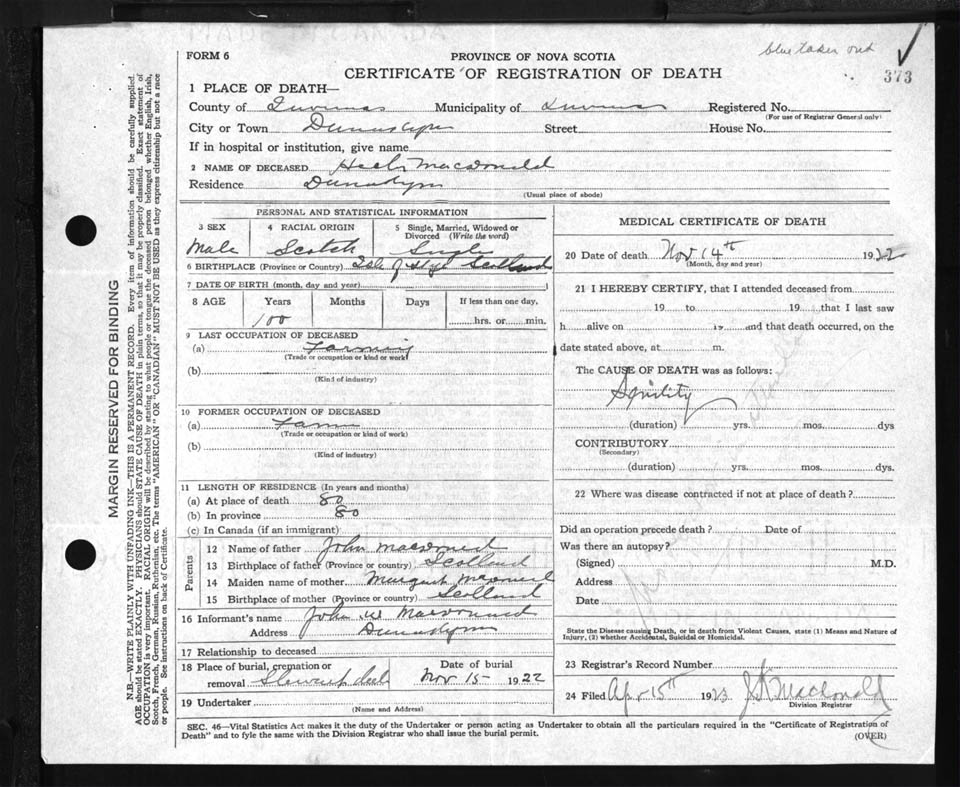 blue taken out
373
FORM 6
PROVINCE OF NOVA SCOTIA
CERTIFICATE OF REGISTRATION OF DEATH
1 PLACE OF DEATH—
County of Inverness Municipality of Inverness Registered No.
(For use of Registrar General only)
City or Town Street House No.
If in hospital or institution, give name
2 NAME OF DECEASED MacDonald
Residence
(Usual place of abode)
PERSONAL AND STATISTICAL INFORMATION
3 SEX 4 RACIAL ORIGIN 5 Single, Married, Widowed or Divorced (Write the word)
Male Scotch Single
6 BIRTHPLACE (Province or Country) Isle of Skye Scotland
7 DATE OF BIRTH (month, day and year)
8 AGE Years Months Days If less than one day,
100 hrs. or min.
9 LAST OCCUPATION OF DECEASED
(a) Farming
(Trade or occupation or kind of work)
(b)
(Kind of industry)
10 FORMER OCCUPATION OF DECEASED
(a)
(Trade or occupation or kind of work)
(b)
(Kind of industry)
11 LENGTH OF RESIDENCE (In years and months)
(a) At place of death 80
(b) In province 80
(c) In Canada (if an immigrant)
Parents
12 Name of father John
13 Birthplace of father (Province or country) Scotland
14 Maiden name of mother Margaret
15 Birthplace of mother (Province or country) Scotland
16 Informant's name John
Address
17 Relationship to deceased
18 Place of burial, cremation or removal
Date of burial
Nov 15 1922
19 Undertaker
(Name and Address)
MEDICAL CERTIFICATE OF DEATH
20 Date of death Nov 14th 1922
(Month, day and year)
21 I HEREBY CERTIFY, that I attended deceased from
19 to 19 that I last saw
h alive on 19 and that death occurred, on the
date stated above, at m.
The CAUSE OF DEATH was as follows:
Senility
(duration) yrs. mos. dys
CONTRIBUTORY
(Secondary)
(duration) yrs. mos. dys.
22 Where was disease contracted if not at place of death?
Did an operation precede death? Date of
Was there an autopsy?
(Signed) M.D.
Address
Date
State the Disease causing Death, or in death from Violent Causes, state (1) Means and Nature of
Injury, (2) whether Accidental, Suicidal or Homicidal.
23 Registrar's Record Number
24 Filed Apr 15th 1923 MacDonald
Division Registrar
SEC. 46—Vital Statistics Act makes it the duty of the Undertaker or person acting as Undertaker to obtain all the particulars required in the "Certificate of Registration of
Death" and to fyle the same with the Division Registrar who shall issue the burial permit.
(OVER)
MARGIN RESERVED FOR BINDING
N.B.—WRITE PLAINLY WITH UNFADING INK—THIS IS A PERMANENT RECORD. Every item of information should be carefully supplied.
AGE should be stated EXACTLY. PHYSICIANS should STATE CAUSE OF DEATH in plain terms, so that it may be properly classified. Exact statement of
OCCUPATION is very important. RACIAL ORIGIN will be described by stating to what people or tongue the deceased person belonged whether English, Irish,
Scotch, French, German, Russian, Ruthenian, etc. The terms "AMERICAN" OR "CANADIAN" MUST NOT BE USED as they express citizenship but not a race
or people. See instructions on back of Certificate.